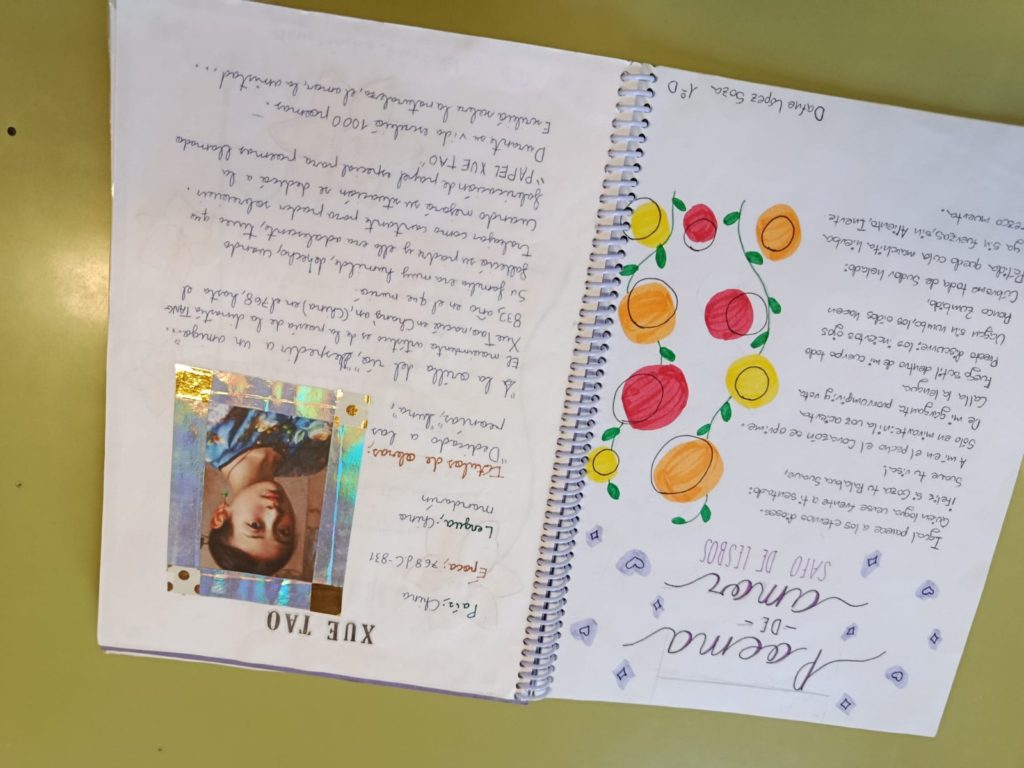 Poema
- DE -
amor
SAFO DE LESBOS
Igual parece a los eternos dioses.
Quien logra verse frente a ti sentado:
¡Feliz si Goza tu Palabra Suave,
Suave tu risa!
A mí en el pecho el Corazón se oprime.
Sólo en mirarte: ni la voz acierta
De mi garganta prorrumpir; y rota
Calla la lengua.
Fuego sutil dentro de mi cuerpo todo
Presto discurre: los inciertos ojos
Vagan sin rumbo, los oídos hacen
Ronco Zumbido.
Cúbrome toda de Sudor helado:
Pálida quedo cual marchita hierba
ya sin fuerzas, sin Aliento, Inerte
rezco muerta.
Dafne López Soza 1º D
XUE TAO
País; China
Época; 768 d.C - 831
Lengua; China
mandarín
Títulos de obras;
"Dedicado a las
peonías", "Luna",
"A la orilla del río", "Despedir a un amigo"...
El movimiento artístico es de la poesía de la dinastía TANG
Xue Tao, nació en Chang'an (China) en el 768, hasta el
833, año en el que murió.
Su familia era muy humilde, de hecho, cuando
falleció su padre y ella era adolescente, tuvo que
trabajar como cantante para poder sobrevivir.
Cuando mejoró su situación se dedicó a la
fabricación de papel especial para poemas llamado
"PAPEL XUE TAO".
Durante su vida escribió 1000 poemas.
Escribió sobre la naturaleza, el amor, la amistad...